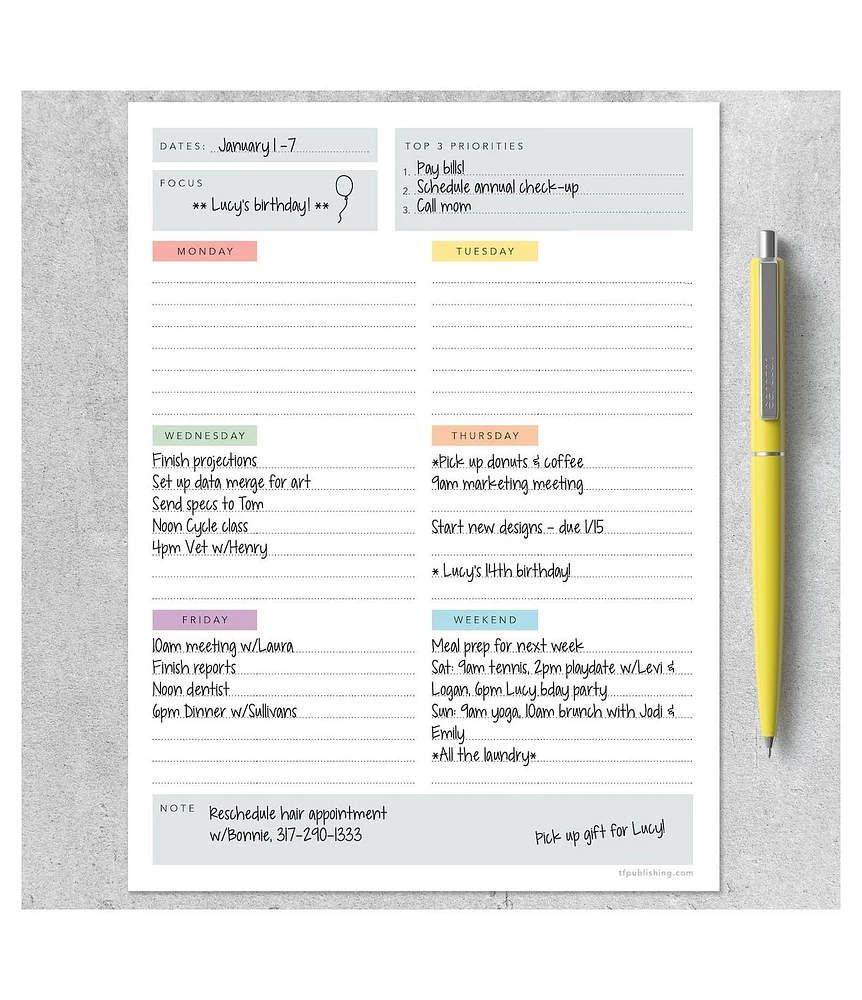 DATES: January 1-7
FOCUS
** Lucy's birthday! **
TOP 3 PRIORITIES
1. Pay bills!
2. Schedule annual check-up
3. Call mom
MONDAY
TUESDAY
WEDNESDAY
Finish projections
Set up data merge for art
Send specs to Tom
Noon Cycle class
4pm Vet w/Henry
THURSDAY
*Pick up donuts & coffee
9am marketing meeting
Start new designs - due 1/15
* Lucy's 14th birthday!
FRIDAY
10am meeting w/Laura
Finish reports
Noon dentist
6pm Dinner w/Sullivans
WEEKEND
Meal prep for next week
Sat: 9am tennis, 2pm playdate w/Levi &
Logan, 6pm Lucy bday party
Sun: 9am yoga, 10am brunch with Jodi &
Emily
*All the laundry*
NOTE
Reschedule hair appointment
w/Bonnie, 317-290-1333
Pick up gift for Lucy!
tfpublishing.com